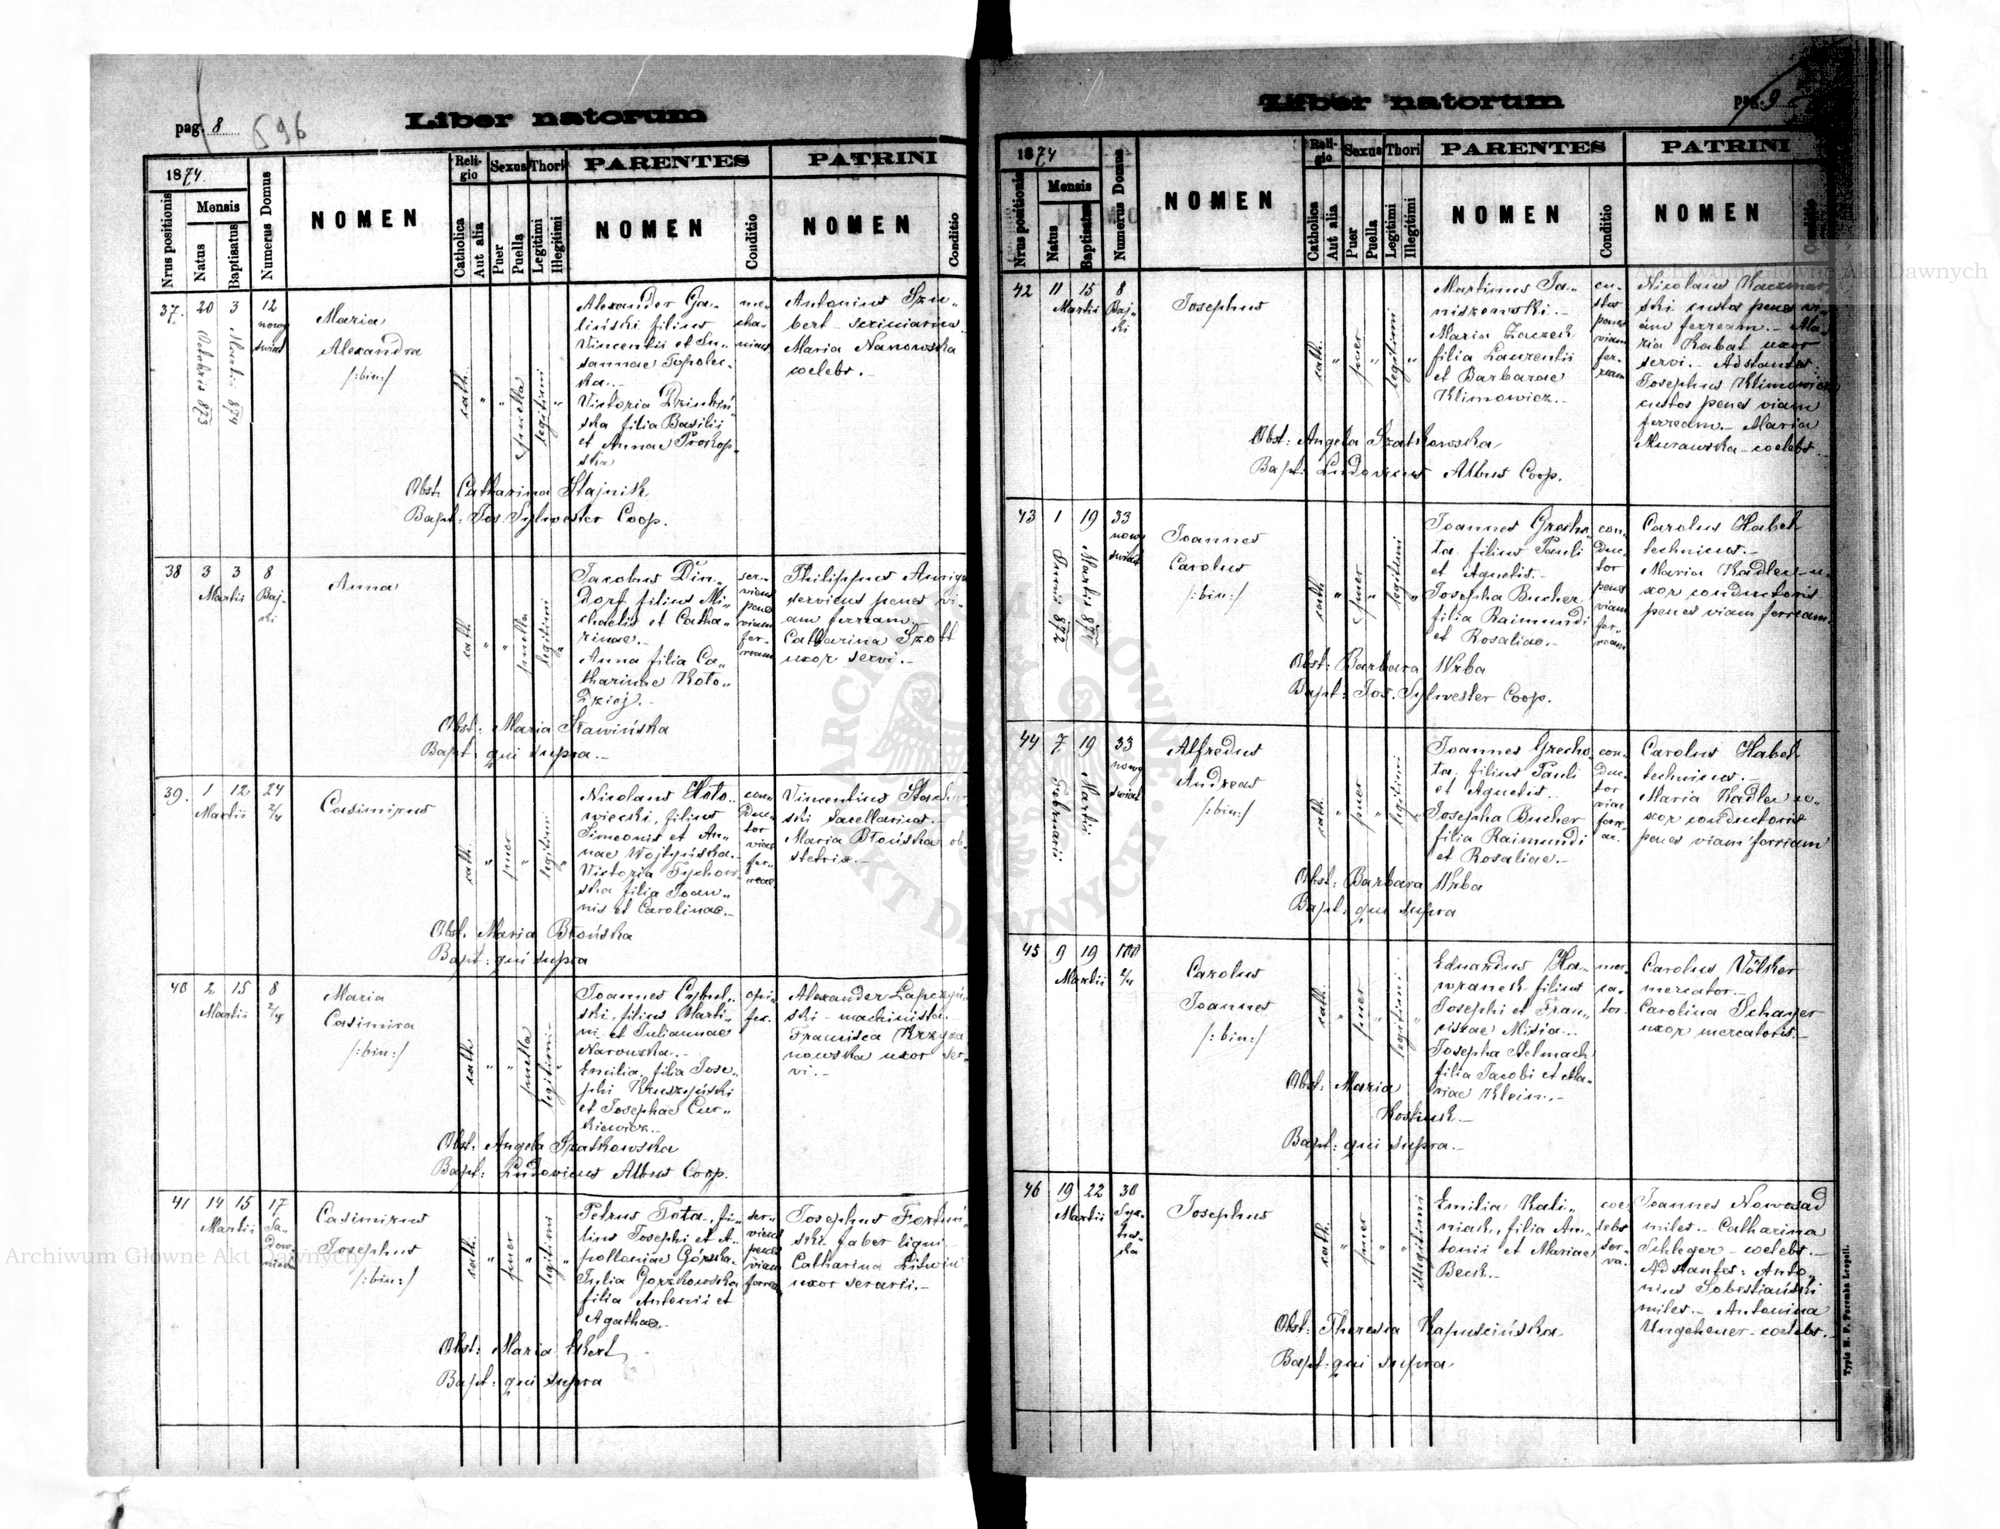 Liber natorum
pag. 8
596
1874
Nrus positionis
Mensis
Natus
Baptisatus
Numerus Domus
NOMEN
Reli-
gio
Catholica
Aut alia
Sexus
Puer
Puella
Thori
Legitimi
Illegitimi
PARENTES
NOMEN
Conditio
PATRINI
NOMEN
Conditio
37.
20
Octobris 873
3
Martii 874
12
nowy
świat
Maria
Alexandra
/:bin:/
cath.
"
"
puella
legitimi
"
Alexander Ga-
liński filius
Vincentii et Su-
sannae Topolec-
ka.-
Victoria Dziubiń-
ska filia Basilii
et Annae Prokop-
ska
me-
cha-
nicus
Antonius Szu-
bert - scriniarius
Maria Nanowska
coelebs.-
Obst. Catharina Stajnik
Bapt: Jos. Sylwester Coop.
38
3
3
Martii
8
Baj-
ki
Anna
cath
"
"
puella
legitimi
"
Jacobus Din-
dorf filius Mi-
chaelis et Catha-
rinae.-
Anna filia Ca-
tharinae Koło-
dziej.-
ser-
viens
penes
viam
fer-
ream
Philippus
serviens penes vi-
am ferream.-
Catharina Szott
uxor servi.-
Obst: Maria Sławińska
Bapt: qui supra.-
39.
1
12
Martii
24
2/4
Casimirus
cath.
"
puer
"
legitimi
"
Nicolaus
wiecki, filius
Simeonis et An-
nae Wojtyńska.-
Victoria Tychow-
ska filia Joan-
nis et Carolinae.-
con-
duc-
tor
viae
fer-
reae
Vincentius
ski sacellarius.-
Maria Błońska ob-
stetrix.-
Obst. Maria Błońska
Bapt: qui supra
40
2
15
Martii
8
2/4
Maria
Casimira
/:bin:/
cath
"
"
puella
legitimi
"
Joannes Cybul-
ski, filius Marti-
ni et Juliannae
Narowska.-
Emilia, filia Jose-
phi Kruszyński
et Josephae Cur-
kiewicz.-
opi-
fex.
Alexander Łapczyń-
ski - machinista.-
Francisca Krzyża
nowska uxor ser-
vi.-
Obst. Angela Szatkowska
Bapt: Ludovicus Albus Coop.
41
14
15
Martii
17
Sa-
dow-
nicka
Casimirus
Josephus
/:bin:/
cath.
"
puer
"
legitimi
"
Petrus Tota, fi-
lius Josephi et A-
polloniae Górska.
Julia Gorzkowska
filia Antonii et
Agathae.-
ser-
viens
penes
viam
ferream
Josephus Fortuń-
ski faber ligni-
Catharina Litwin
uxor serarii.-
Obst: Maria Ekert
Bapt: qui supra
Liber natorum
pag. 9
1874
Nrus positionis
Mensis
Natus
Baptisatus
Numerus Domus
NOMEN
Reli-
gio
Catholica
Aut alia
Sexus
Puer
Puella
Thori
Legitimi
Illegitimi
PARENTES
NOMEN
Conditio
PATRINI
NOMEN
Conditio
42
11
15
Martii
8
Baj-
ki
Josephus
cath.
"
puer
"
legitimi
"
Martinus Ja-
niszowski.-
Maria Zaczek
filia Laurentii
et Barbarae
Klimowicz.-
cu-
stos
penes
viam
fer-
ream
Nicolaus Kaczmar-
ski custos penes vi-
am ferream.- Ma-
ria Kabat uxor
servi.- Adstantes:
Josephus Klimowicz
custos penes viam
ferream.- Maria
Murawska - coelebs.-
Obst: Angela Szatkowska
Bapt: Ludovicus Albus Coop.
43
1
19
Martii 874
33
nowy
świat
Joannes
Carolus
/:bin:/
cath
"
puer
"
legitimi
"
Joannes Grecho-
ta filius Pauli
et Agnetis.-
Josepha Bucher
filia Raimundi
et Rosaliae.-
con-
duc-
tor
penes
viam
fer-
ream
Carolus Habel
technicus.-
Maria Kadlec-u-
xor conductoris
penes viam ferream.
Obst: Barbara Wrba
Bapt: Jos. Sylwester Coop.
44
7
Februarii
19
Martii
33
nowy
świat
Alfredus
Andreas
/:bin:/
cath.
"
puer
"
legitimi
"
Joannes Grecho-
ta, filius Pauli
et Agnetis.-
Josepha Bucher
filia Raimundi
et Rosaliae.-
con-
duc-
tor
viae
ferre-
ae.
Carolus Habel
technicus.-
Maria Kadlec u-
xor conductoris
penes viam ferream
Obst: Barbara Wrba
Bapt: qui supra
45
9
19
Martii
2/4
Carolus
Joannes
/:bin:/
cath.
"
puer
"
legitimi
"
Eduardus Ha-
wranek filius
Josephi et Fran-
ciscae Misia.-
Josepha Selmach
filia Jacobi et Ma-
riae Klein.-
mer-
ca-
tor.
Carolus Völker
mercator.-
Carolina Schayer
uxor mercatoris.-
Obst: Maria
Kostiuk.-
Bapt: qui supra.-
46
19
22
Martii
30
Josephus
cath.
"
puer
"
"
illegitimi
Emilia Kali-
niak, filia An-
tonii et Mariae
Beck.-
coe-
lebs
ser-
va.
Joannes Nowosad
miles.- Catharina
Schleger - coelebs.-
Adstantes: Anto-
nius Sobestiański
miles.- Antonina
Ungeheuer - coelebs.-
Obst: Theresia Kapuścińska
Bapt: qui supra
Typis M. F. Poremba Leopoli.
Archiwum Główne Akt Dawnych
Archiwum Główne Akt Dawnych
ARCHIWUM GŁÓWNE AKT DAWNYCH